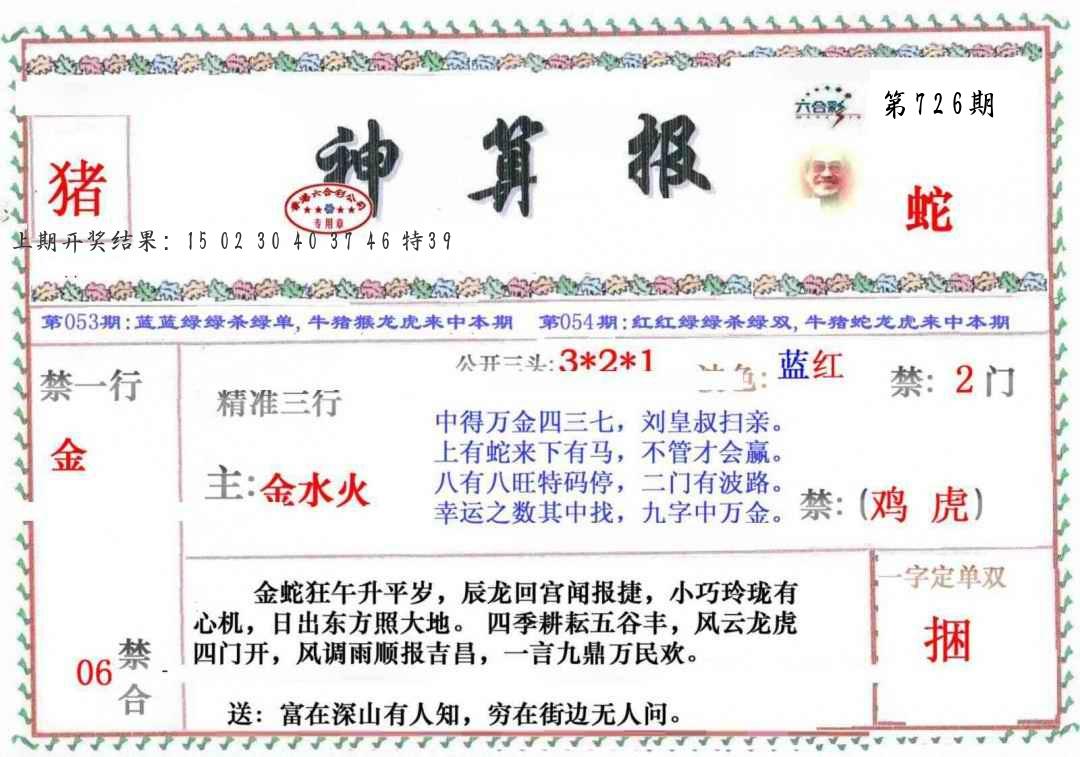 第726期
六合彩
神算报
香港六合彩公司
专用章
猪
蛇
上期开奖结果：15 02 30 40 37 46 特39
第053期:蓝蓝绿绿杀绿单,牛猪猴龙虎来中本期 第054期:红红绿绿杀绿双,牛猪蛇龙虎来中本期
禁一行
金
公开三头:3*2*1
色: 蓝红
禁: 2门
精准三行
主:金水火
中得万金四三七，刘皇叔扫亲。
上有蛇来下有马，不管才会赢。
八有八旺特码停，二门有波路。
幸运之数其中找，九字中万金。
禁:(鸡 虎)
金蛇狂午升平岁，辰龙回宫闻报捷，小巧玲珑有
心机，日出东方照大地。 四季耕耘五谷丰，风云龙虎
四门开，风调雨顺报吉昌，一言九鼎万民欢。
送：富在深山有人知，穷在街边无人问。
06
禁合
一字定单双
捆